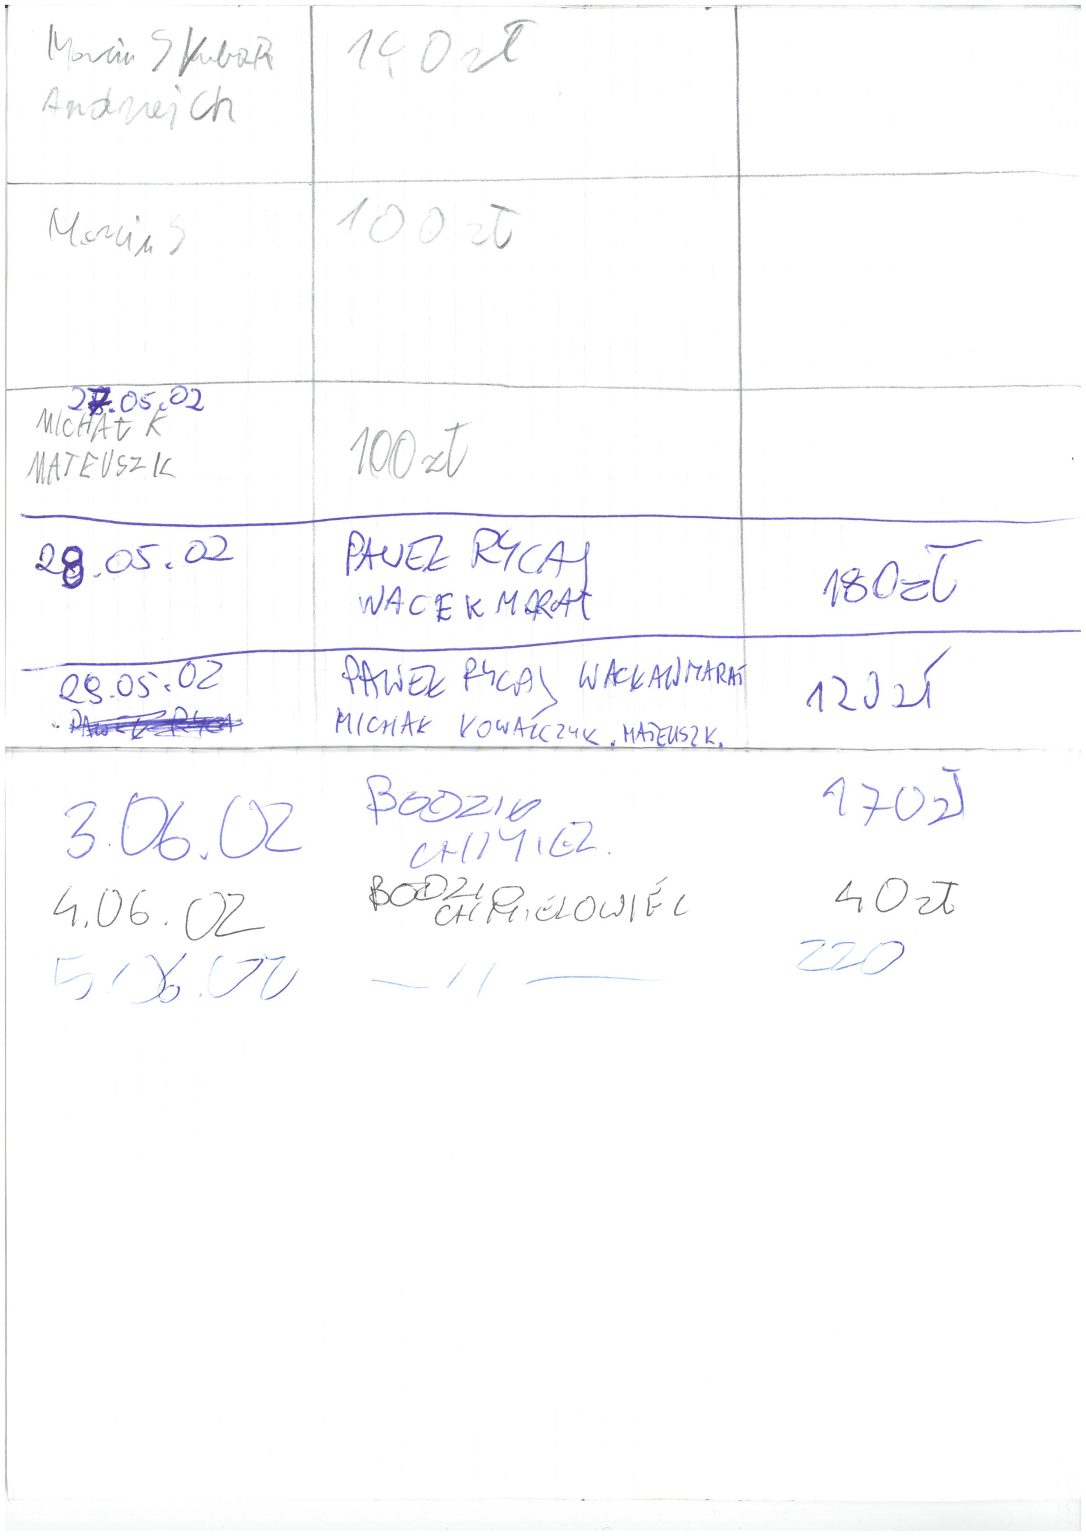 Marcin S Kubak 140 zł
Andrzej Ch
Marcin S 100 zł
27.05.02
MICHAŁ K
MATEUSZ K 100 zł
28.05.02 PAWEŁ RYCAJ 180 zł
WACEK MARAT
29.05.02 PAWEŁ RYCAJ WACŁAW MARAT 120 zł
MICHAŁ KOWALCZYK. MATEUSZ K.
3.06.02 BODZIO 170 zł
CHMIEL.
4.06.02 BODZIO 40 zł
CHMIELOWIEC
5.06.02 —//— 220